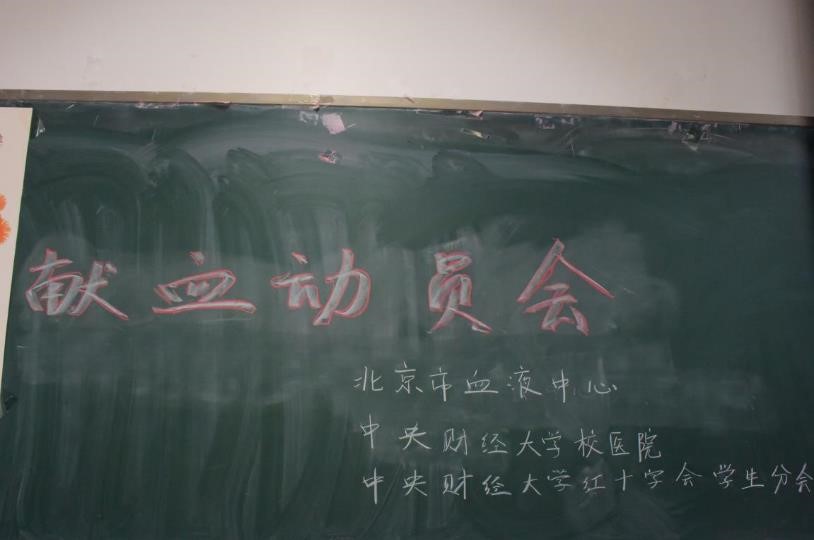 献血动员会
北京市血液中心
中央财经大学校医院
中央财经大学红十字会学生分会